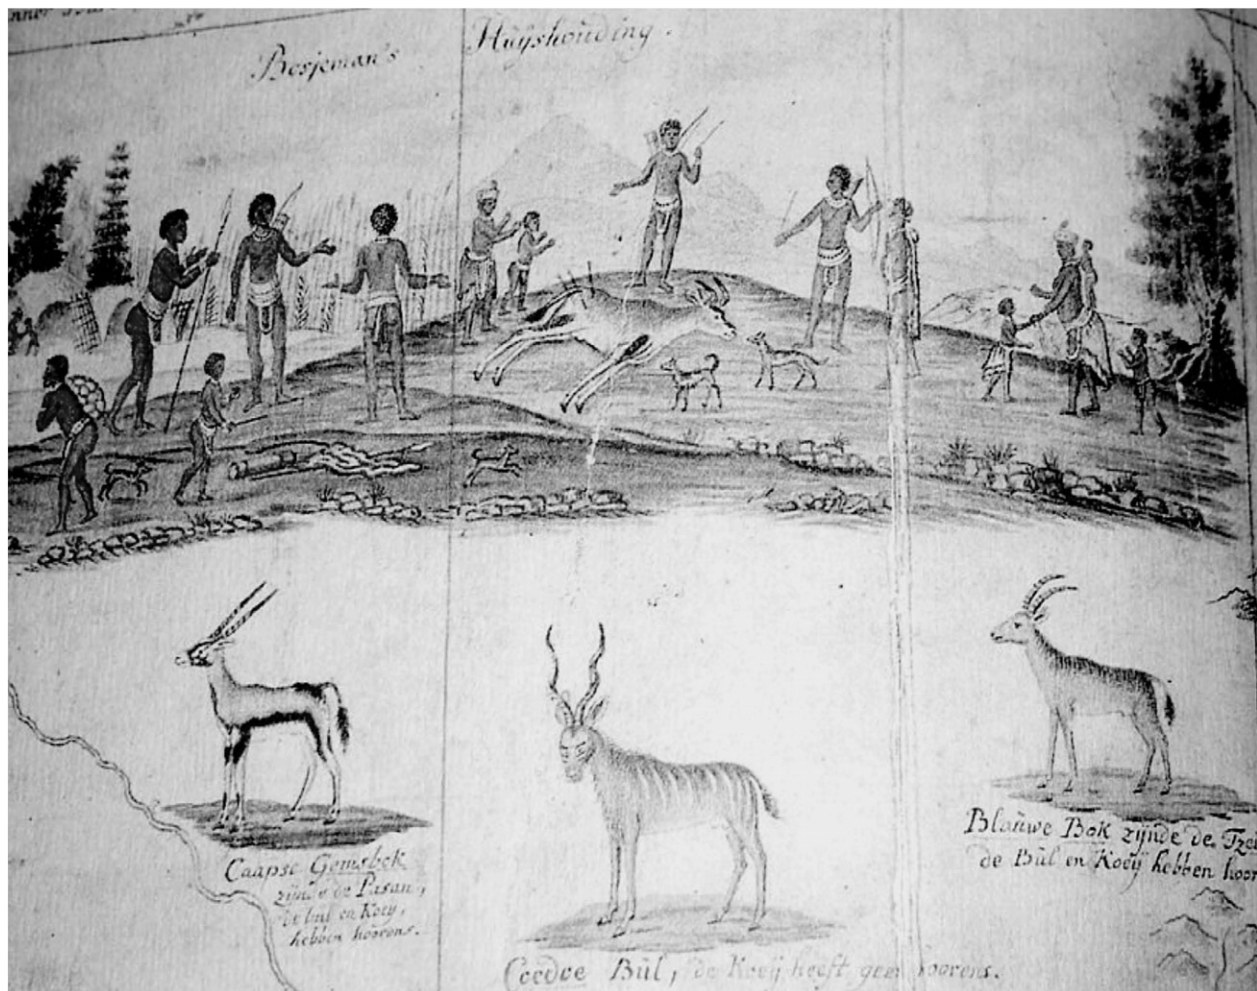 Bosjeman's Huÿshouding.
Caapse Gemsbok
zijnde de Pasan,
de bul en Koeÿ,
hebben hoorens.
Coedoe Bùl, de Koeÿ heeft geen hoorens.
Blaùwe Bok zÿnde de
de Bùl en Koeÿ hebben hoor